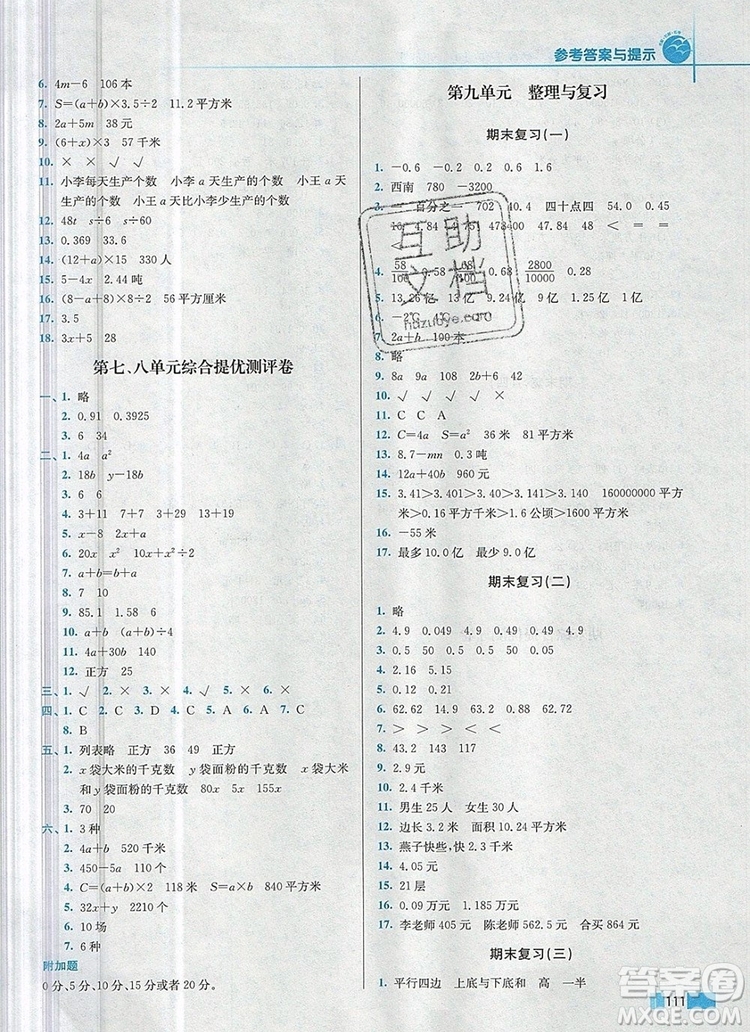 参考答案与提示
6. 4m－6　106 本
7. S=(a+b)×3.5÷2　11.2 平方米
8. 2a+5　38 元
9. (6+x)×3　57 千米
10. ×　×　√　√
11. 小李每天生产的个数　小李 a 天生产的个数　小王 a 天
生产的个数　小王 a 天比小李少生产的个数
12. 48t　s÷6　s÷6
13. 0.369　33.6
14. (12+a)×15　330 人
15. 5－4x　2.4 吨
16. (8－a)×(8－b)÷2　56 平方厘米
17. 3.5
18. 3x+5　28
第七、八单元综合提优测评卷
一、1. 略
2. 0.91　0.3925
3. 6　34
二、1. 4a　a²
2. 18b　y－18b
3. 6　6　6
4. 3+11　7+13　7+29　13+19
5. x－8　2x－8
6. 20x　x²　10x　x²÷2
7. a÷b=b+a
8. 7　10
9. 85.1　2.88
10. a+b　(a+b)÷4
11. 4a+30b　140
12. 正方　25
三、1. √　2. ×　3. ×　4. √　5. ×　6. ×
四、1. C　2. C　3. D　4. C　5. A　6. A　7. C
8. B
五、1. 列表略　正方　36　49　正方
2. x 袋大米的千克数　y 袋面粉的千克数　x 袋大米
和 y 袋面粉的千克数　80x　5x　155x
3. 70　20
六、1. 3 种
2. 4a+b　520 千米
3. 450－5a　110 个
4. C=(a+b)×2　118 米　S=a×b　840 平方米
5. 32x+2x　2210 元
6. 10 场
7. 6 种
附加题
0 分、5 分、10 分、15 分或者 20 分。
第九单元　整理与复习
期末复习(一)
1. －0.6　－0.2　0.2　0.6　1.6
2. 西南　780　－3200
3. 一　百分之一　702　40.4　四十点四　54.0　0.45
10　4.84　4.75　478400　47.84　48　<　=　=
<
4. 58/100　0.58　68/100　0.68　2800/10000　0.28
5. 13.26 亿　13 亿　9.24 亿　9 亿　1.25 亿　1 亿
6. －2℃　4℃
7. 2a+b　190 本
8. 略
9. 8a　9a　4x²　ab
10. √　√　√　√　×
11. C　C　A
12. C=4a　S=a²　36 米　81 平方米
13. 8.7－mn　0.3 吨
14. 12a+40b　960 元
15. 3.41>3.401>3.40>3.14>3.140　160000000 平方
米>0.16 平方千米>1.6 公顷>1600 平方米
16. －55 米
17. 最多 10.0 亿　最少 9.0 亿
期末复习(二)
1. 略
2. 4.9　0.049　4.9　0.49　0.49　4.9
3. 0.5　50　50　0.5　0.5　0.5
4. 2.16　5.15
5. 0.12　0.21
6. 62.62　14.9　0.288　62.88　62.72
7. >　>　>　<　<
8. 43.2　143　117
9. 2.9 元
10. 2.4 千米
11. 男生 25 人　女生 30 人
12. 边长 3.2 米　面积 10.24 平方米
13. 燕子快些，快 2.4 千米
14. 4.05 元
15. 21 层
16. 0.09 万米　1.08 万米
17. 李老师 405 元　陈老师 562.5 元　合买 864 元
期末复习(三)
1. 平行四边　上底与下底和　高　一半
互助
文档
huzuoye.com
111
答案圈
MXQE.COM